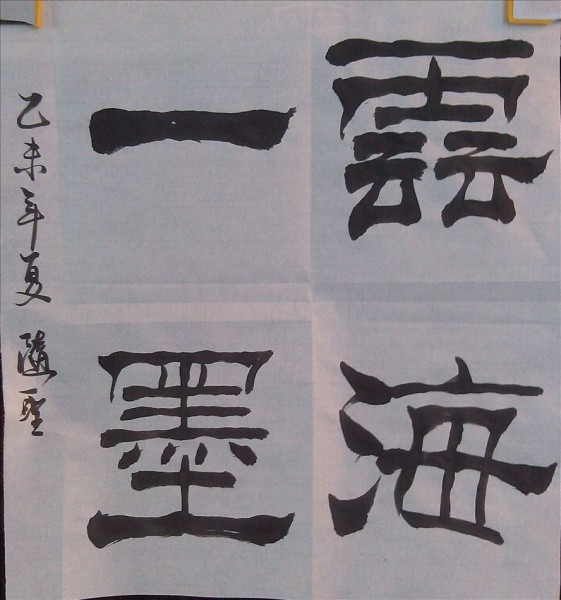 雲海
一墨
乙未年夏 隨聖